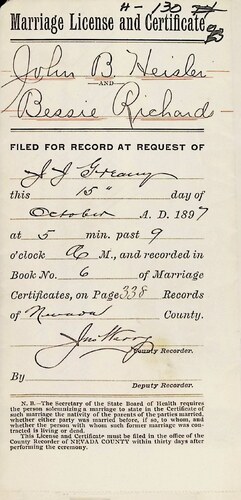 H - 130
Marriage License and Certificate
John B. Heisler
—AND—
Bessie Richards
FILED FOR RECORD AT REQUEST OF
J J Greany
this 15" day of
October A. D. 1897
at 5 min. past 9
o'clock A M., and recorded in
Book No. 6 of Marriage
Certificates, on Page 338 Records
of Nevada County.
County Recorder.
By
Deputy Recorder.
N. B.—The Secretary of the State Board of Health requires
the person solemnizing a marriage to state in the Certificate of
such marriage the nativity of the parents of the parties married,
whether either party was married before, if so, to whom, and
whether the person with whom such former marriage was con-
tracted is living or dead.
This License and Certificate must be filed in the office of the
County Recorder of NEVADA COUNTY within thirty days after
performing the ceremony.